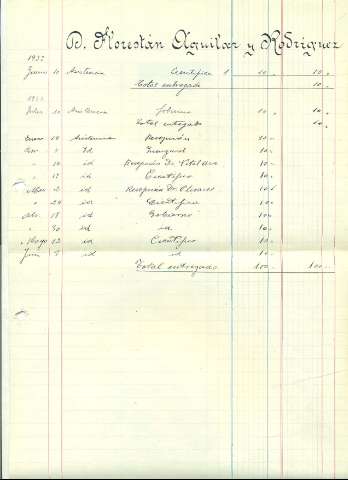 D. Florestán Aguilar y Rodríguez
1932
Junio 10 Asistencia Científica 1 10,- 10,
Total entregado 10,
Julio 10 Asistencia Gobierno 10, 10,
Total entregado 10,
Enero 19 Asistencia Recepción 10,-
id Inaugural 10,-
" 10 id Recepción Dr. 10,-
" 17 id Científica 10,-
2 id Recepción Dr. Olivares 10,-
" 24 id Científica 10,-
Abr. 18 id Gobierno 10,-
" 30 id id 10,-
Mayo 13 id Científica 10,-
Junio 3 id id 10,-
Total entregado 100,- 100,-